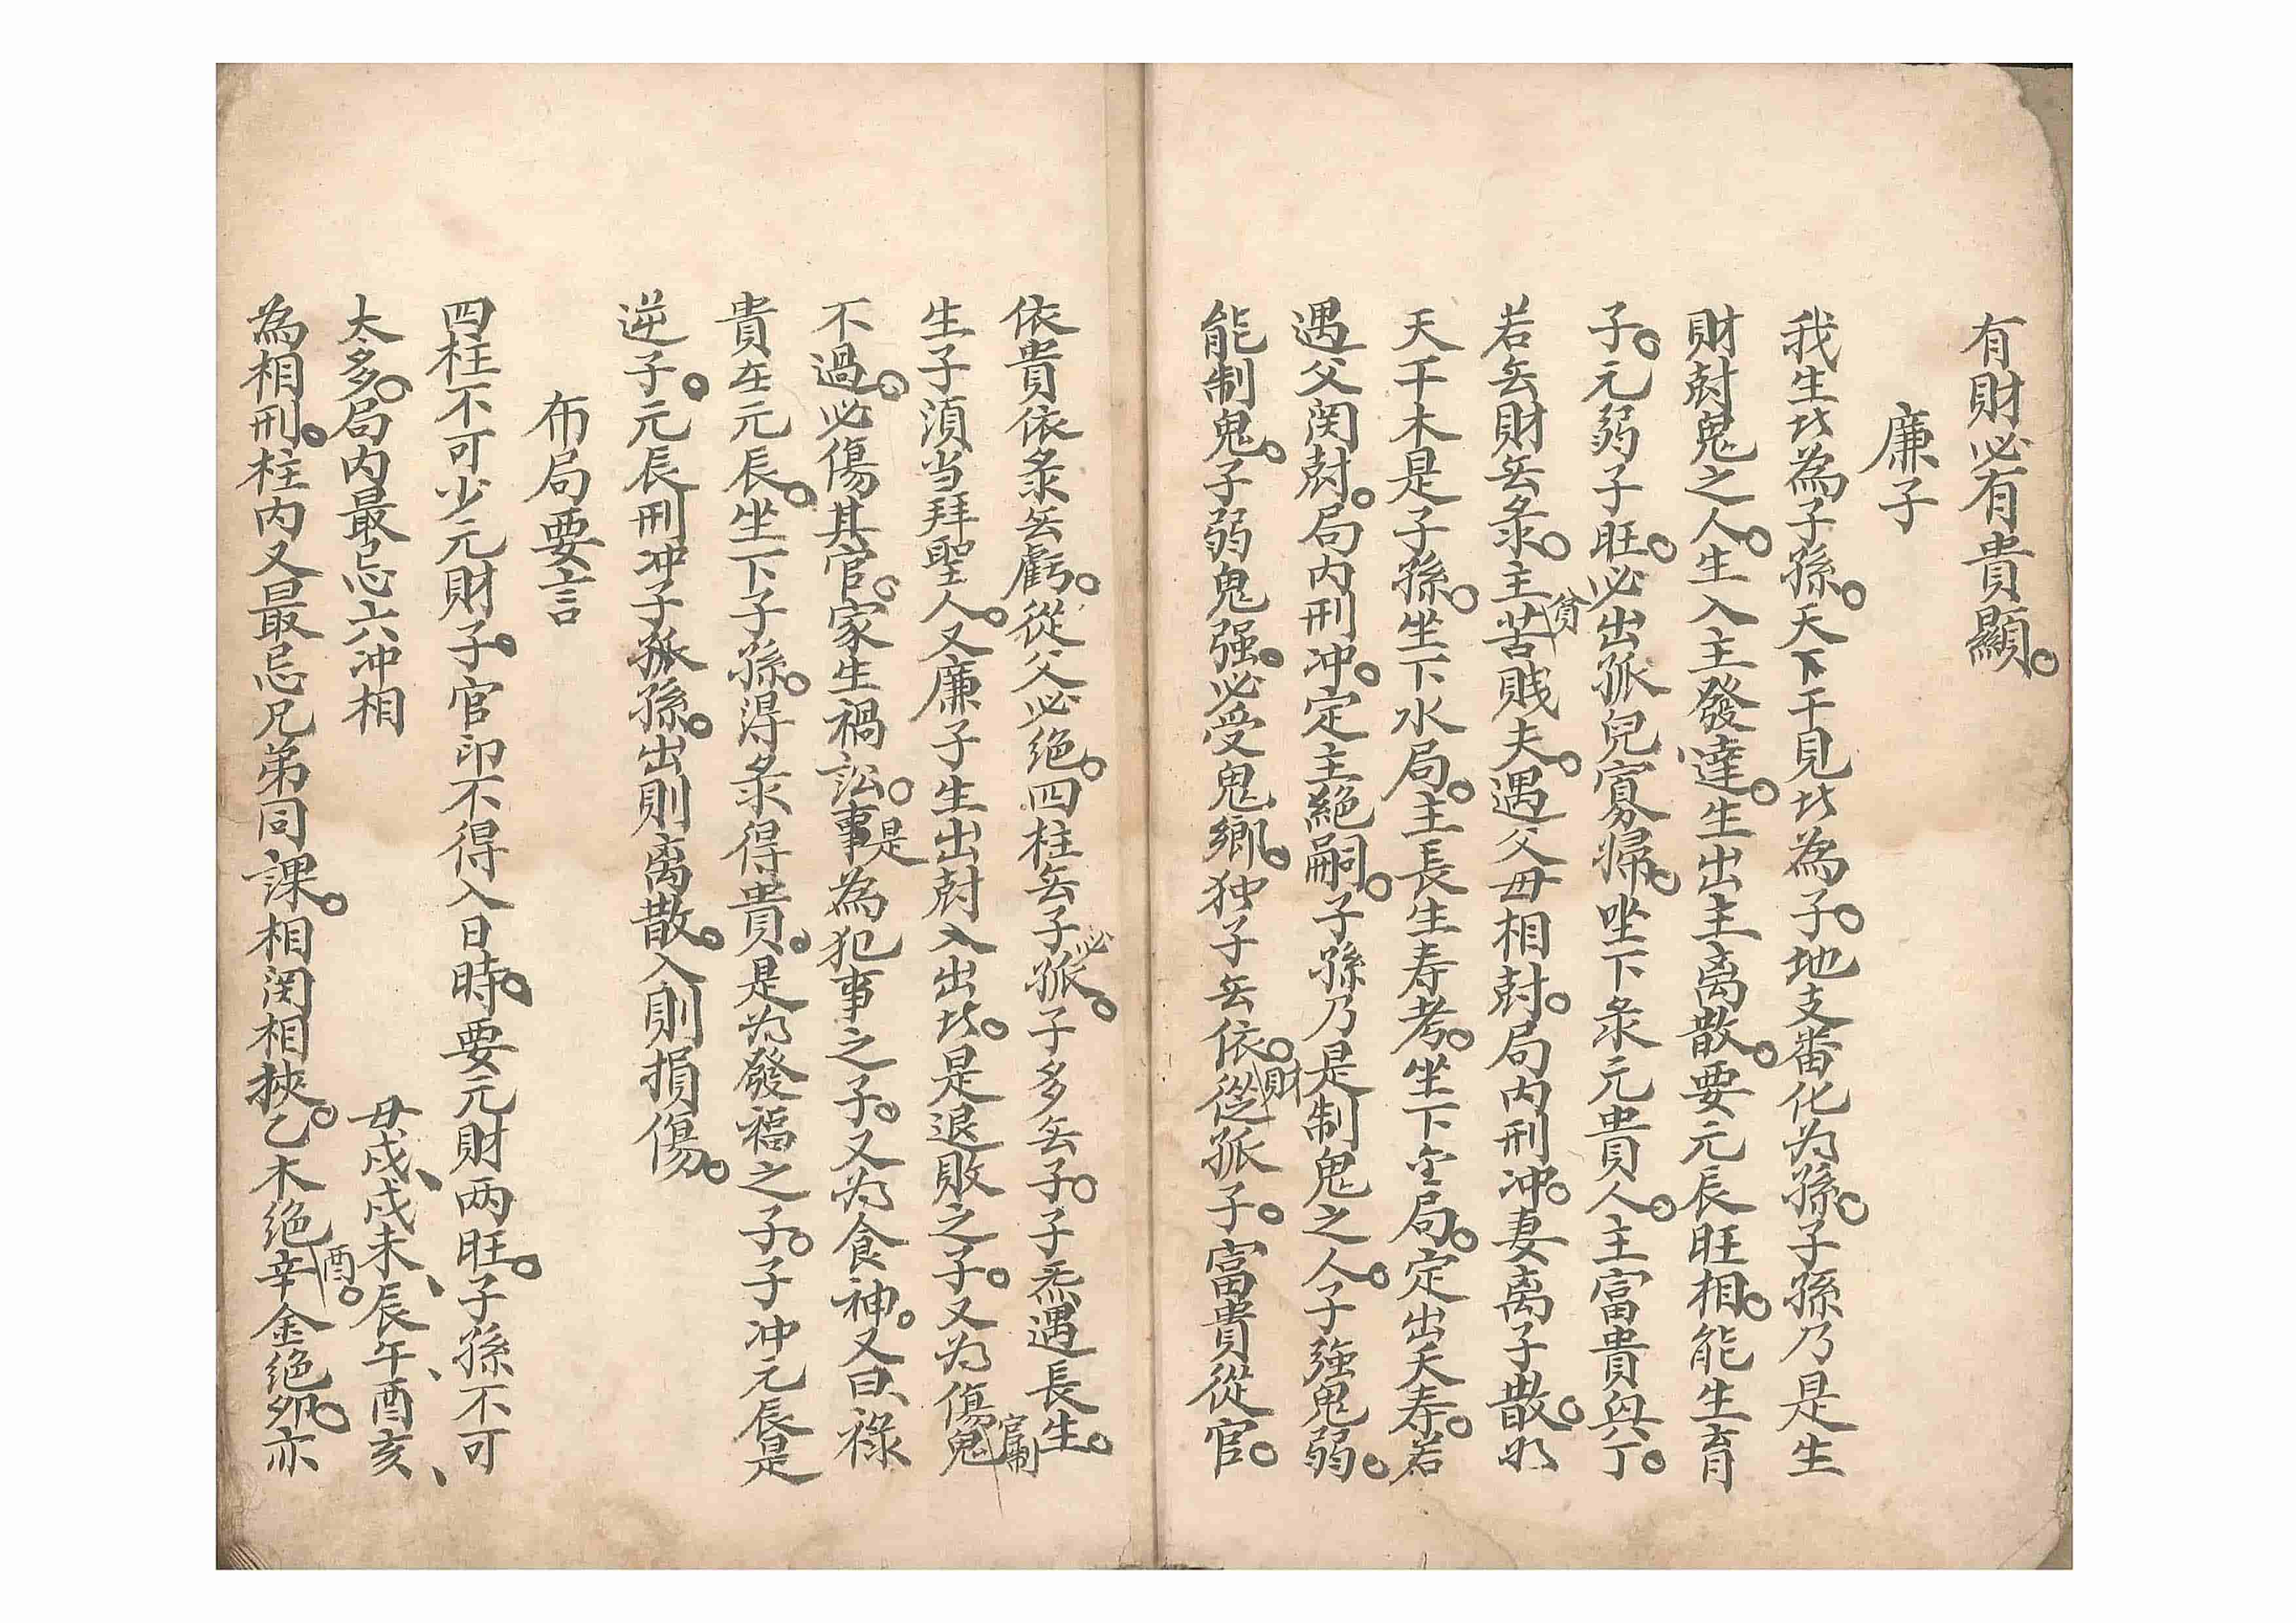 有財必有貴顯。
廉子
我生出為子孫。天下干見出為子。地支番化为孫。子孫乃是生
財尅鬼之人。生入主發達。生出主离散。要元辰旺相。能生育
子。元弱子旺。必出孤兒寡婦。坐下彔元貴人。主富貴與丁。
若無財無彔。主貧苦賎夫。遇父母相尅。局内刑冲。妻离子散。如
天干木是子孫。坐下水局。主長生寿考。坐下金局。定出夭寿。若
遇父関尅。局内刑冲。定主絶嗣。子孫乃是制鬼之人。子強鬼弱。
能制鬼。子弱鬼强。必受鬼鄉。独子無依。從財孤子。富貴從官。
依貴依彔無虧。從父必绝。四柱無子必孤。子多無子。子炁遇長生。
生子湏当拜聖人。又廉子生出尅入出出。是退敗之子。又为傷官制鬼
不過。必傷其官。家生禍訟。事是為犯事之子。又为食神。又曰、祿
貴在元辰。坐下子孫。淂彔得貴。是为發福之子。子冲元辰是
逆子。元辰刑冲子孤孫。出則离散。入則損傷。
布局要言
四柱不可少元財子。官印不得入日時。要元財两旺。子孫不可
太多。局内最忌六冲相 母戌、戌未、辰午、酉亥、
為相刑。柱内又最忌兄弟同課。相関相挾。乙木绝酉。辛金绝夘。亦